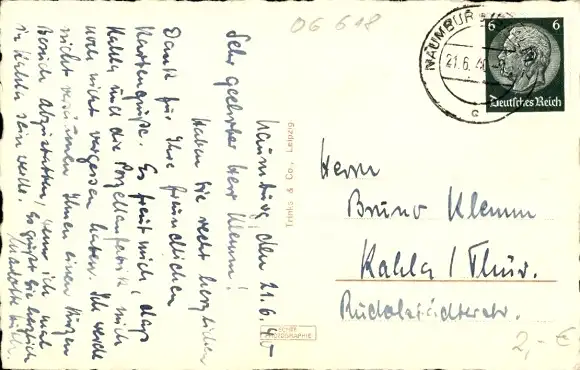 OG 618
Naumburg, den 21.6.40
Sehr geehrter Herr Klemm!
Haben Sie recht herzlichen
Dank für Ihre freundlichen
Kartengrüße. Es freut mich, dass
Kahla und die Porzellanfabrik mich
noch nicht vergessen haben. Ich werde
nicht versäumen Ihnen einen kurzen
Besuch abzustatten, wenn ich mal
in Kahla sein werde. Es grüßt Sie herzlich
Trinks & Co., Leipzig
ECHTE
PHOTOGRAPHIE
NAUMBURG
21.6.40
c
6 6
Deutsches Reich
Herrn
Bruno Klemm
Kahla / Thür.
Rudolstädterstr.
2,- €